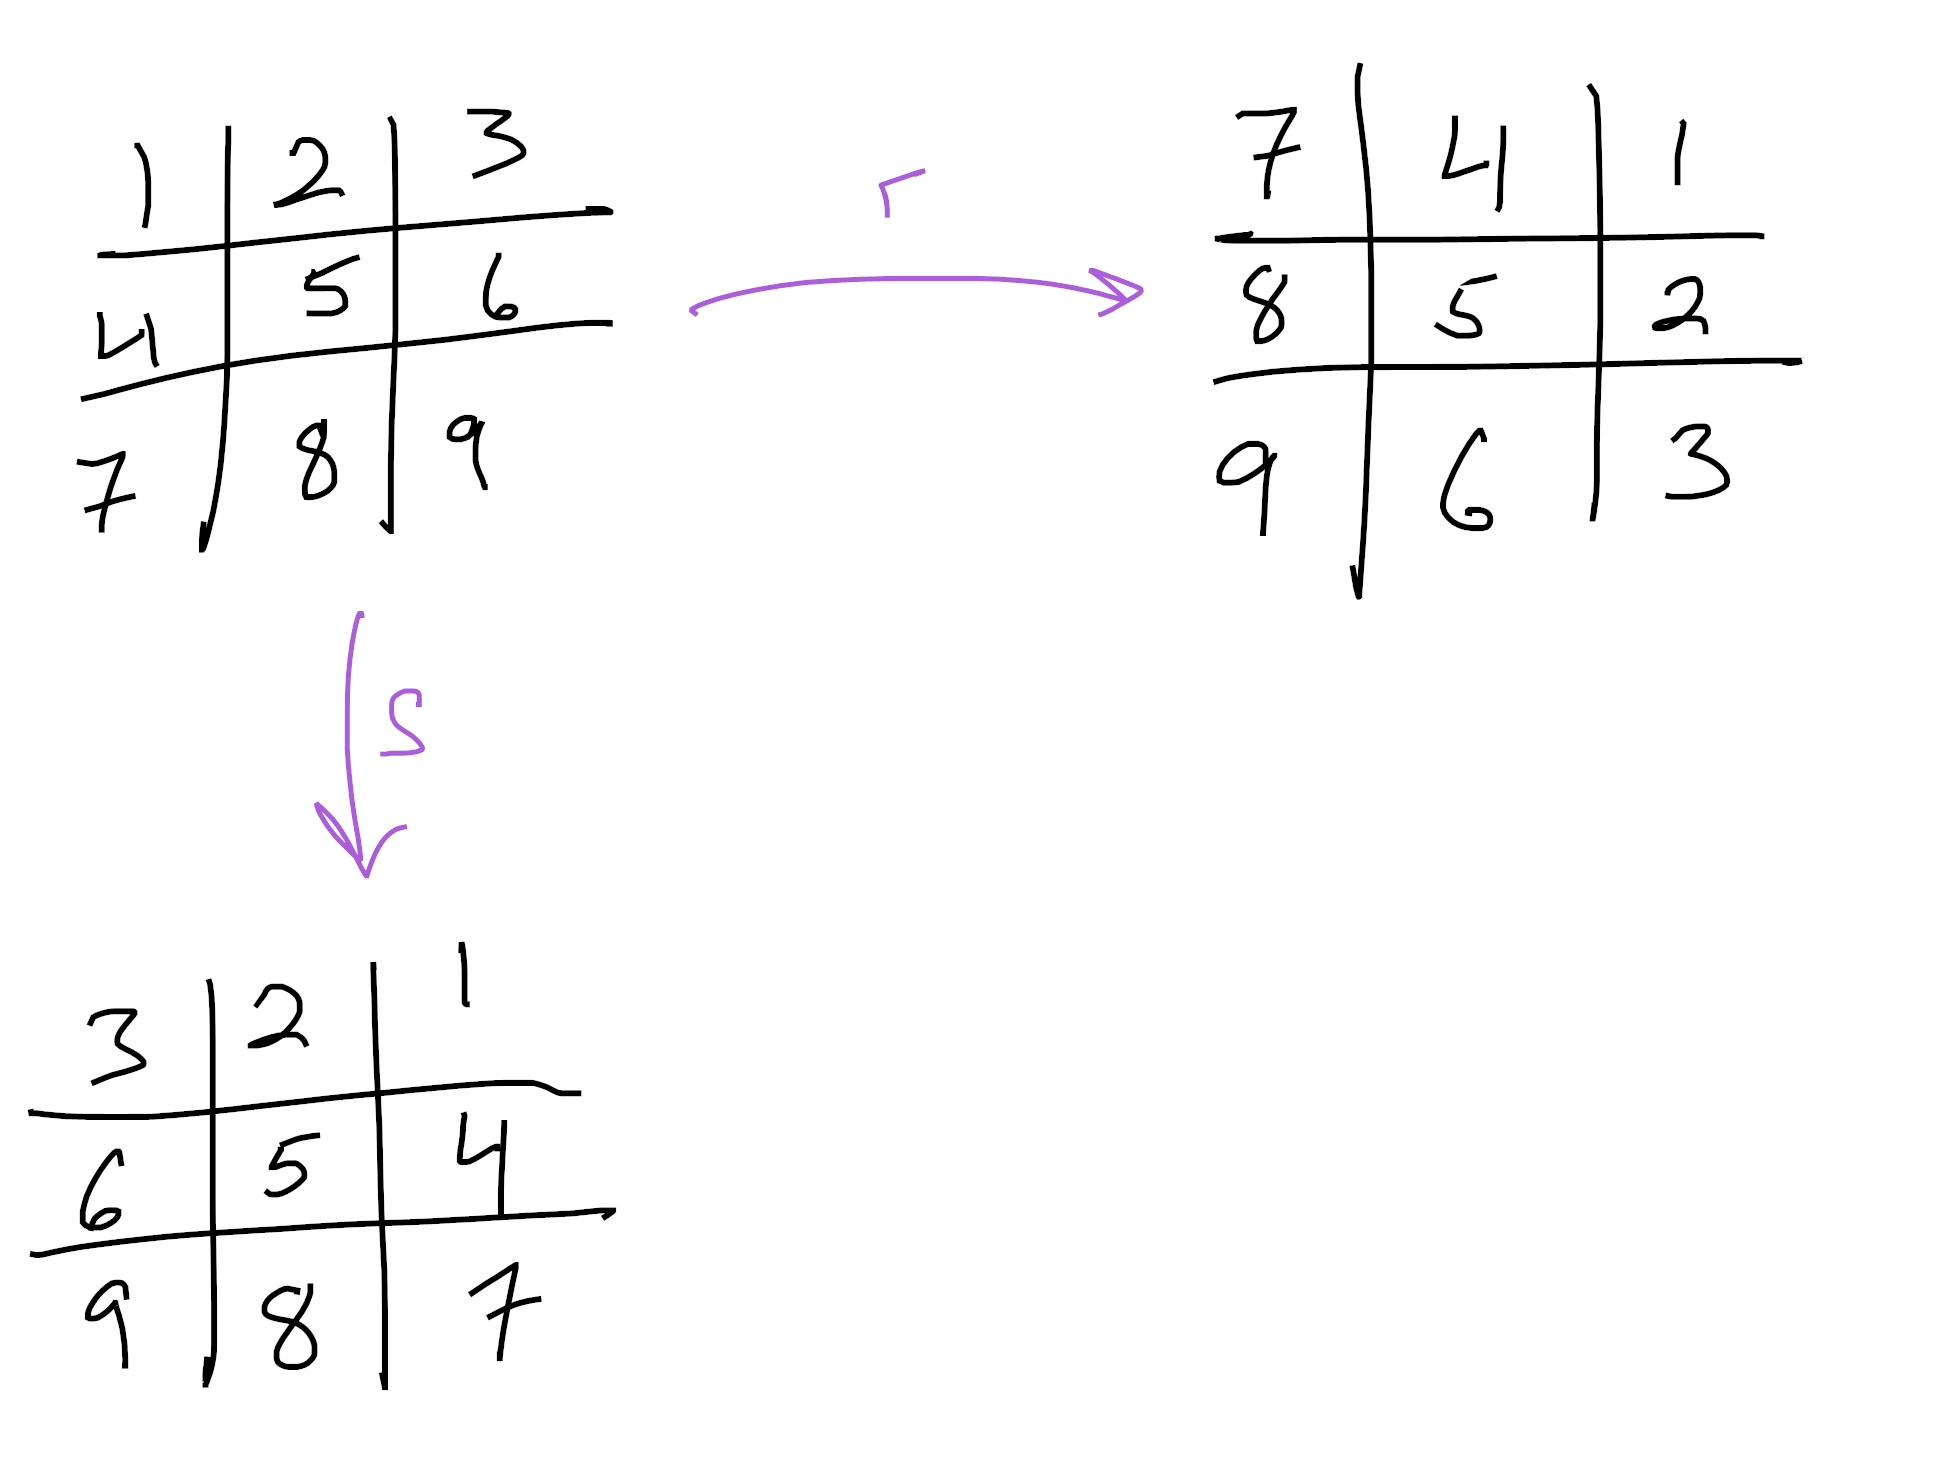 1 2 3
4 5 6
7 8 9
r
7 4 1
8 5 2
9 6 3
s
3 2 1
6 5 4
9 8 7